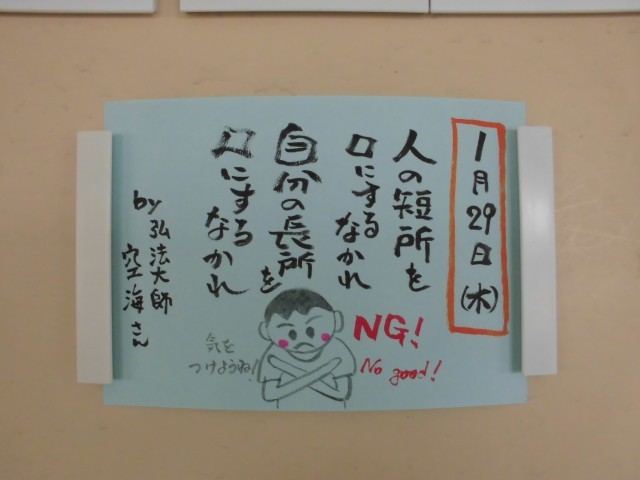 1月29日(木)
人の短所を
口にするなかれ
自分の長所を
口にするなかれ
by 弘法大師
空海さん
NG!
No good!
気を
つけようね!